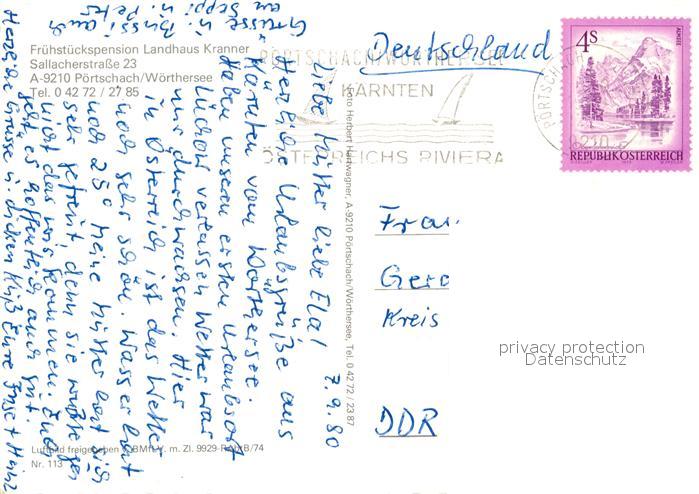 Frühstückspension Landhaus Kranner
Sallacherstraße 23
A-9210 Pörtschach/Wörthersee
Tel. 0 42 72 / 27 85
PÖRTSCHACH/WÖRTHERSEE
KÄRNTEN
ÖSTERREICHS RIVIERA
PÖRTSCHACH
9210
4s
ALMSEE
REPUBLIK ÖSTERREICH
Deutschland
Frau
Gera
Kreis
DDR
privacy protection
Datenschutz
Foto Herbert Hertwagner, A-9210 Pörtschach/Wörthersee, Tel. 0 42 72 / 23 87
7.9.80
Liebe Mutter liebe Ela!
Herzliche Urlaubsgrüße aus
Kärnten vom Wörthersee.
Haben unseren ersten Urlaubsort
verlassen Wetter war
nur durchwachsen. Hier
in Österreich ist das Wetter
noch sehr schön. Wasser hat
noch 23° meine Mutter hat sich
sehr gefreut, denn sie wußte ja
nicht das wir kommen. Euch
geht es hoffentlich auch gut.
Herzliche Grüsse u. dicken Kuß Eure Inge + Heinz
Grüsse u. Bussi auch
an Seppi u. Peter
Luftbild freigegeben v. BMfLV. m. Zl. 9929-RAbtB/74
Nr. 113